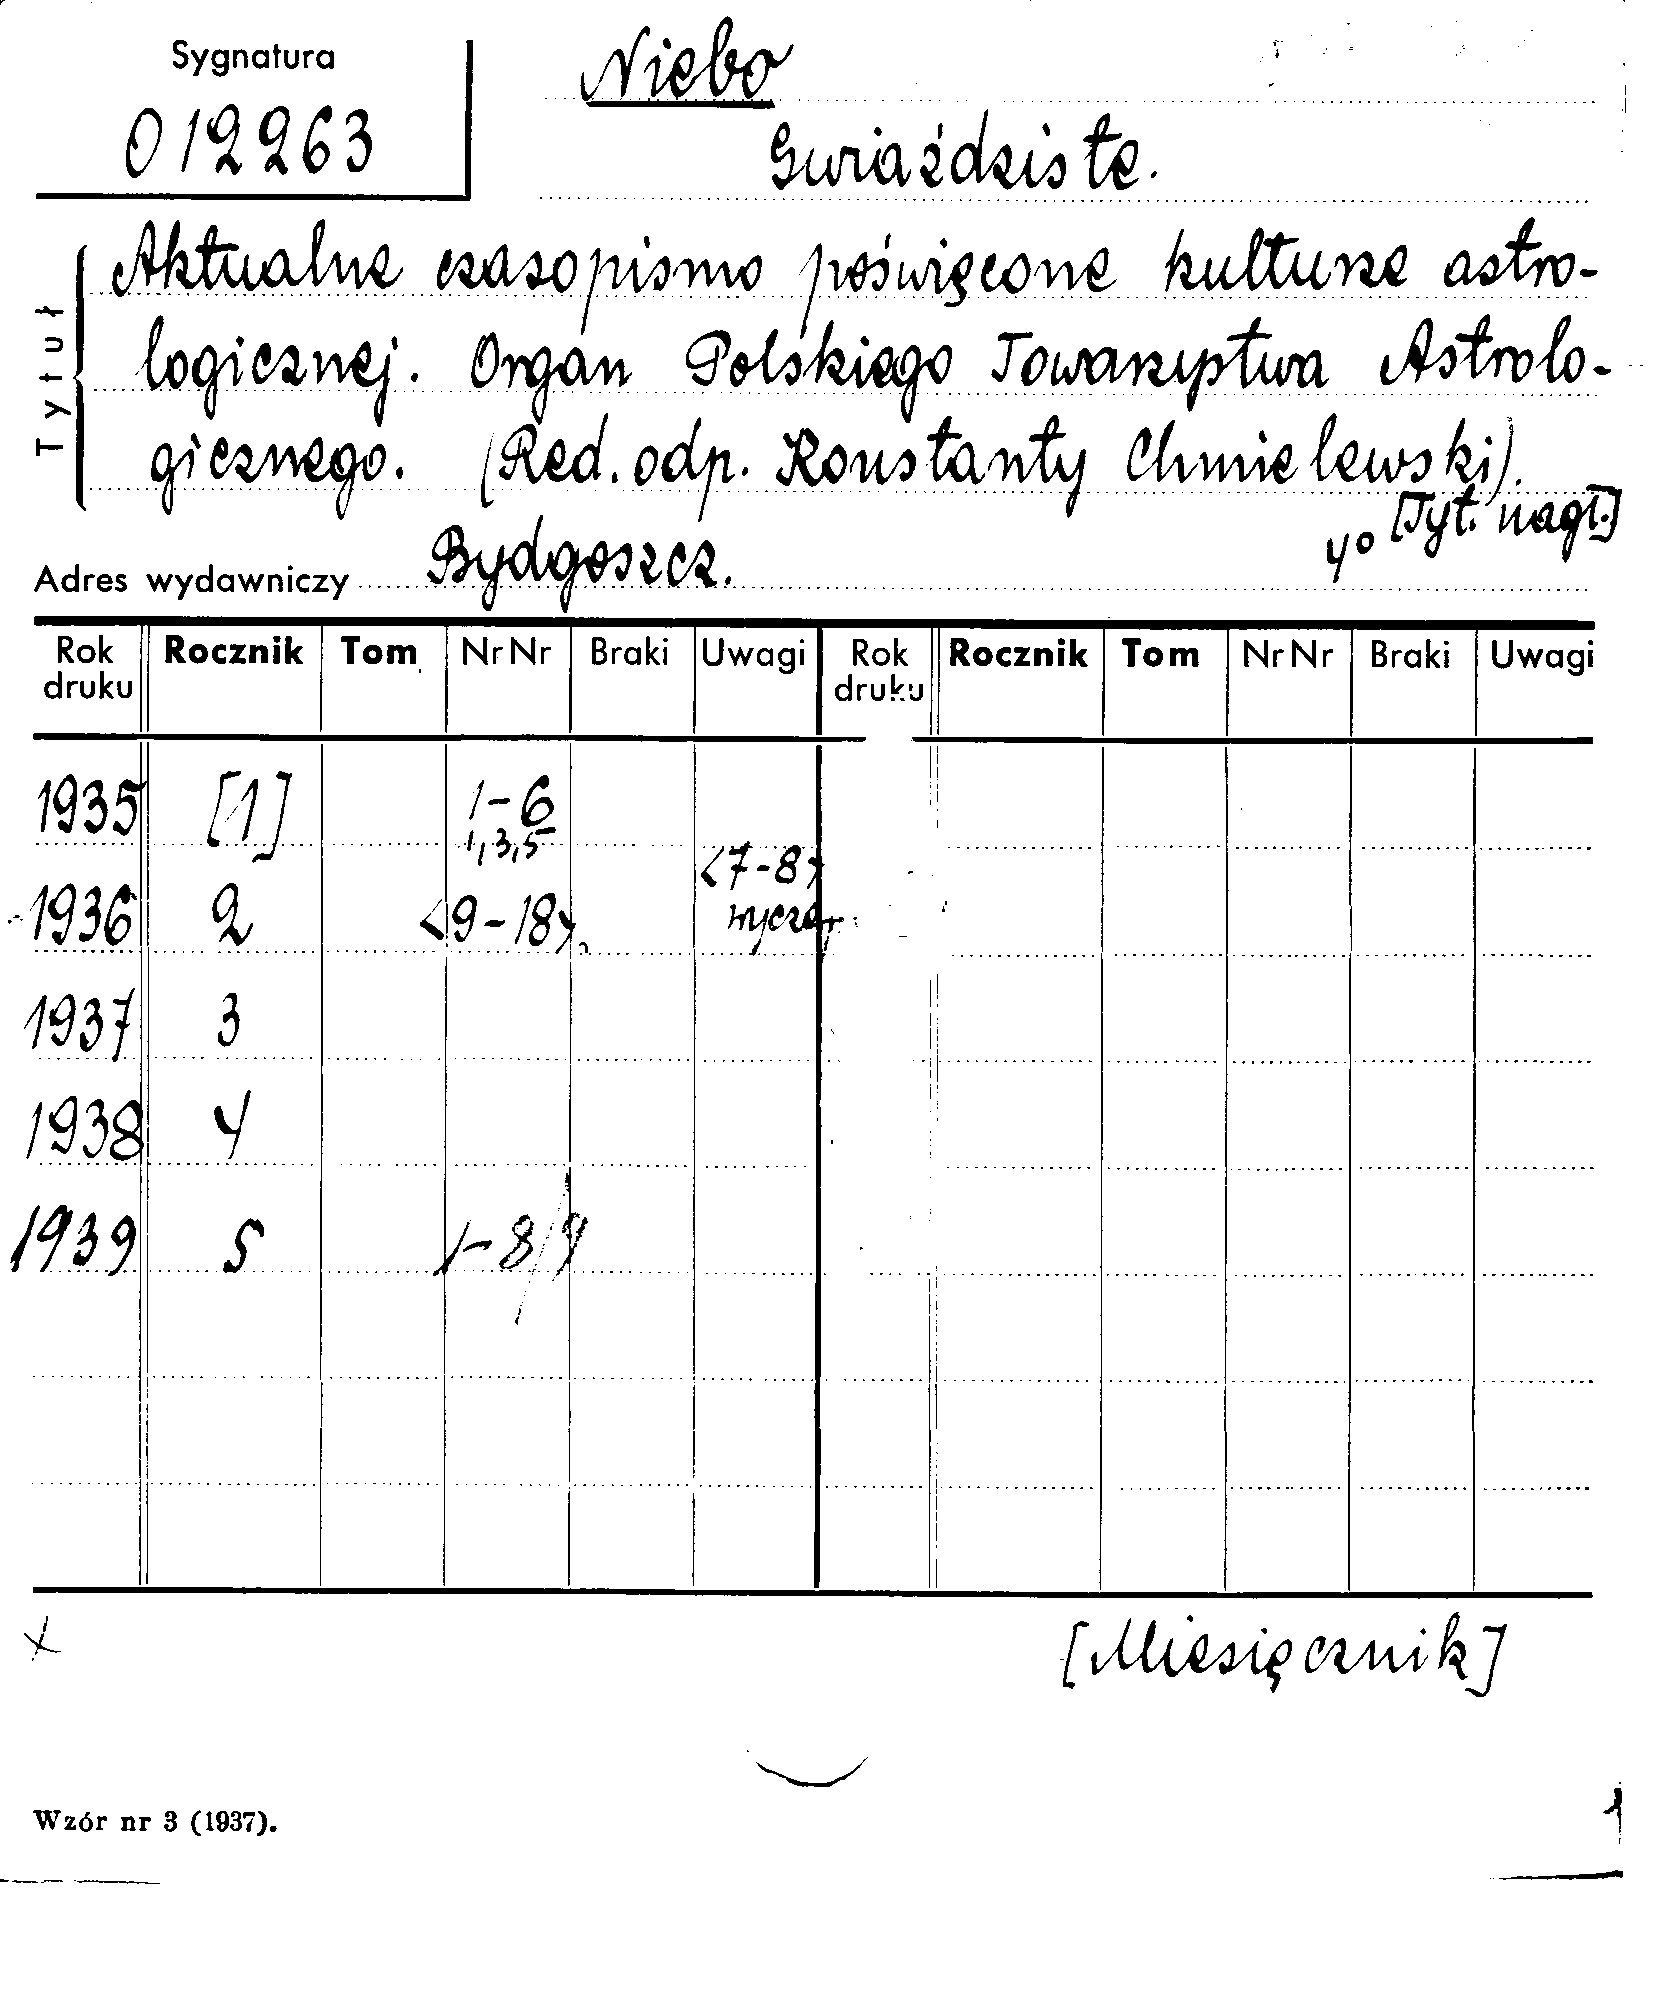 Sygnatura
012263
Niebo
Gwiaździste.
Tytuł
Aktualne czasopismo poświęcone kulturze astro-
logicznej. Organ Polskiego Towarzystwa Astrolo-
gicznego. (Red. odp. Konstanty Chmielewski).
4° [Tyt. nagł.]
Adres wydawniczy Bydgoszcz.
Rok druku Rocznik Tom Nr Nr Braki Uwagi Rok druku Rocznik Tom Nr Nr Braki Uwagi
1935 [1] 1-6
1,3,5
<7-8>
1936 2 <9-18>
1937 3
1938 4
1939 5 1-8/9
[Miesięcznik]
Wzór nr 3 (1937).
1